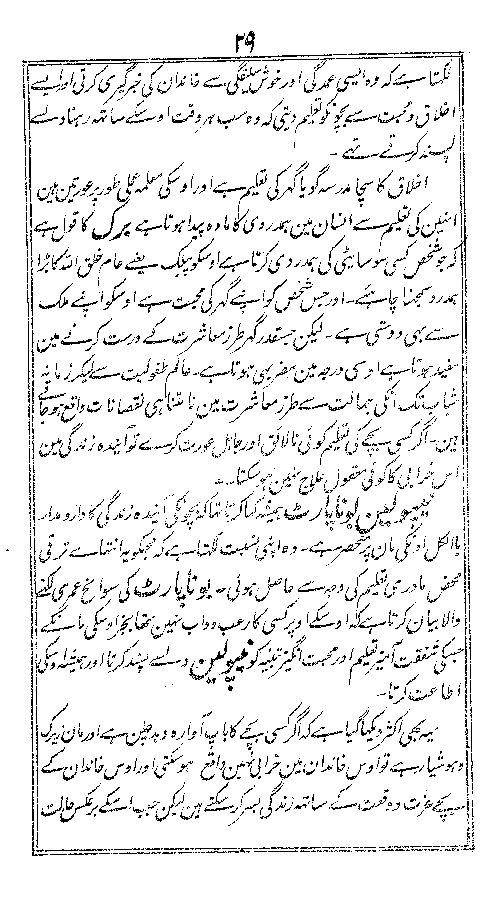 ۲۹
لکتا ہے کہ وہ ایسی عمدگی اور خوش سلیقگی سے خاندان کی خبر گیری کرتی اور ایسے
اخلاق و محبت سے بچونکو تعلیم دیتی کہ وہ سب ہر وقت اوسکے ساتھہ رہنا دلسے
پسند کرتے تہے۔
اخلاق کا سچا مدرسہ گویا گہر کی تعلیم ہے اور اوسکی معلمہ عملی طور پر عورتین ہین
انہین کی تعلیم سے انسان مین ہمدردی کا مادہ پیدا ہوتا ہے برک کا قول ہے
کہ جو شخص کسی سوسایٹی کی ہمدردی کرتا ہے اوسکو پبلک یعنے عام خلق اللہ کا بڑا
ہمدرد سمجنا چاہئے۔ اور جس شخص کو اپنے گہر کی محبت ہے اوسکو اپنے ملک
سے بہی دوستی ہے۔ لیکن جسقدر گہر طرز معاشرت کے درست کرنے مین
مفید ہوتا ہے اوسی درجہ مین مضر بہی ہوتا ہے۔ عالم طفولیت سے لیکر زمانہ
شباب تک انکی جہالت سے طرز معاشرت مین نامتناہی نقصانات واقع ہو جاتے
ہین۔ اگر کسی بچے کی تعلیم کوئی نالائق اور جاہل عورت کرے تو آیندہ زندگی مین
اس خرابی کا کوئی معقول علاج نہین ہو سکتا۔
نیپولین بوناپارٹ ہمیشہ کہا کرتا تہا کہ بچونکی آیندہ زندگی کا دارو مدار
بالکل اونکی مان پر منحصر ہے۔ وہ اپنی نسبت لکہتا ہے کہ مجہکو یہ انتہاے ترقی
محض مادری تعلیم کی وجہ سے حاصل ہوئی۔ بوناپارٹ کی سوانح عمری لکہنے
والا بیان کرتا ہے کہ اوسکے اوپر کسی کا رعب و داب نہین تہا بجز اوسکی مانکے
جسکی شفقت آمیز تعلیم اور محبت انگیز تنبیہ کو نیپولین دلسے پسند کرتا اور ہمیشہ اوسکی
اطاعت کرتا۔
یہ بہی اکثر دیکہا گیا ہے کہ اگر کسی بچے کا باپ آوارہ و بدچلن ہے اور مان زیرک
و ہوشیار ہے تو اوس خاندان مین خرابی نہین واقع ہو سکتی اور اوس خاندان کے
بچے عزت و وقعت کے ساتہہ زندگی بسر کر سکتے ہین لیکن جب اسکے برعکس حالت